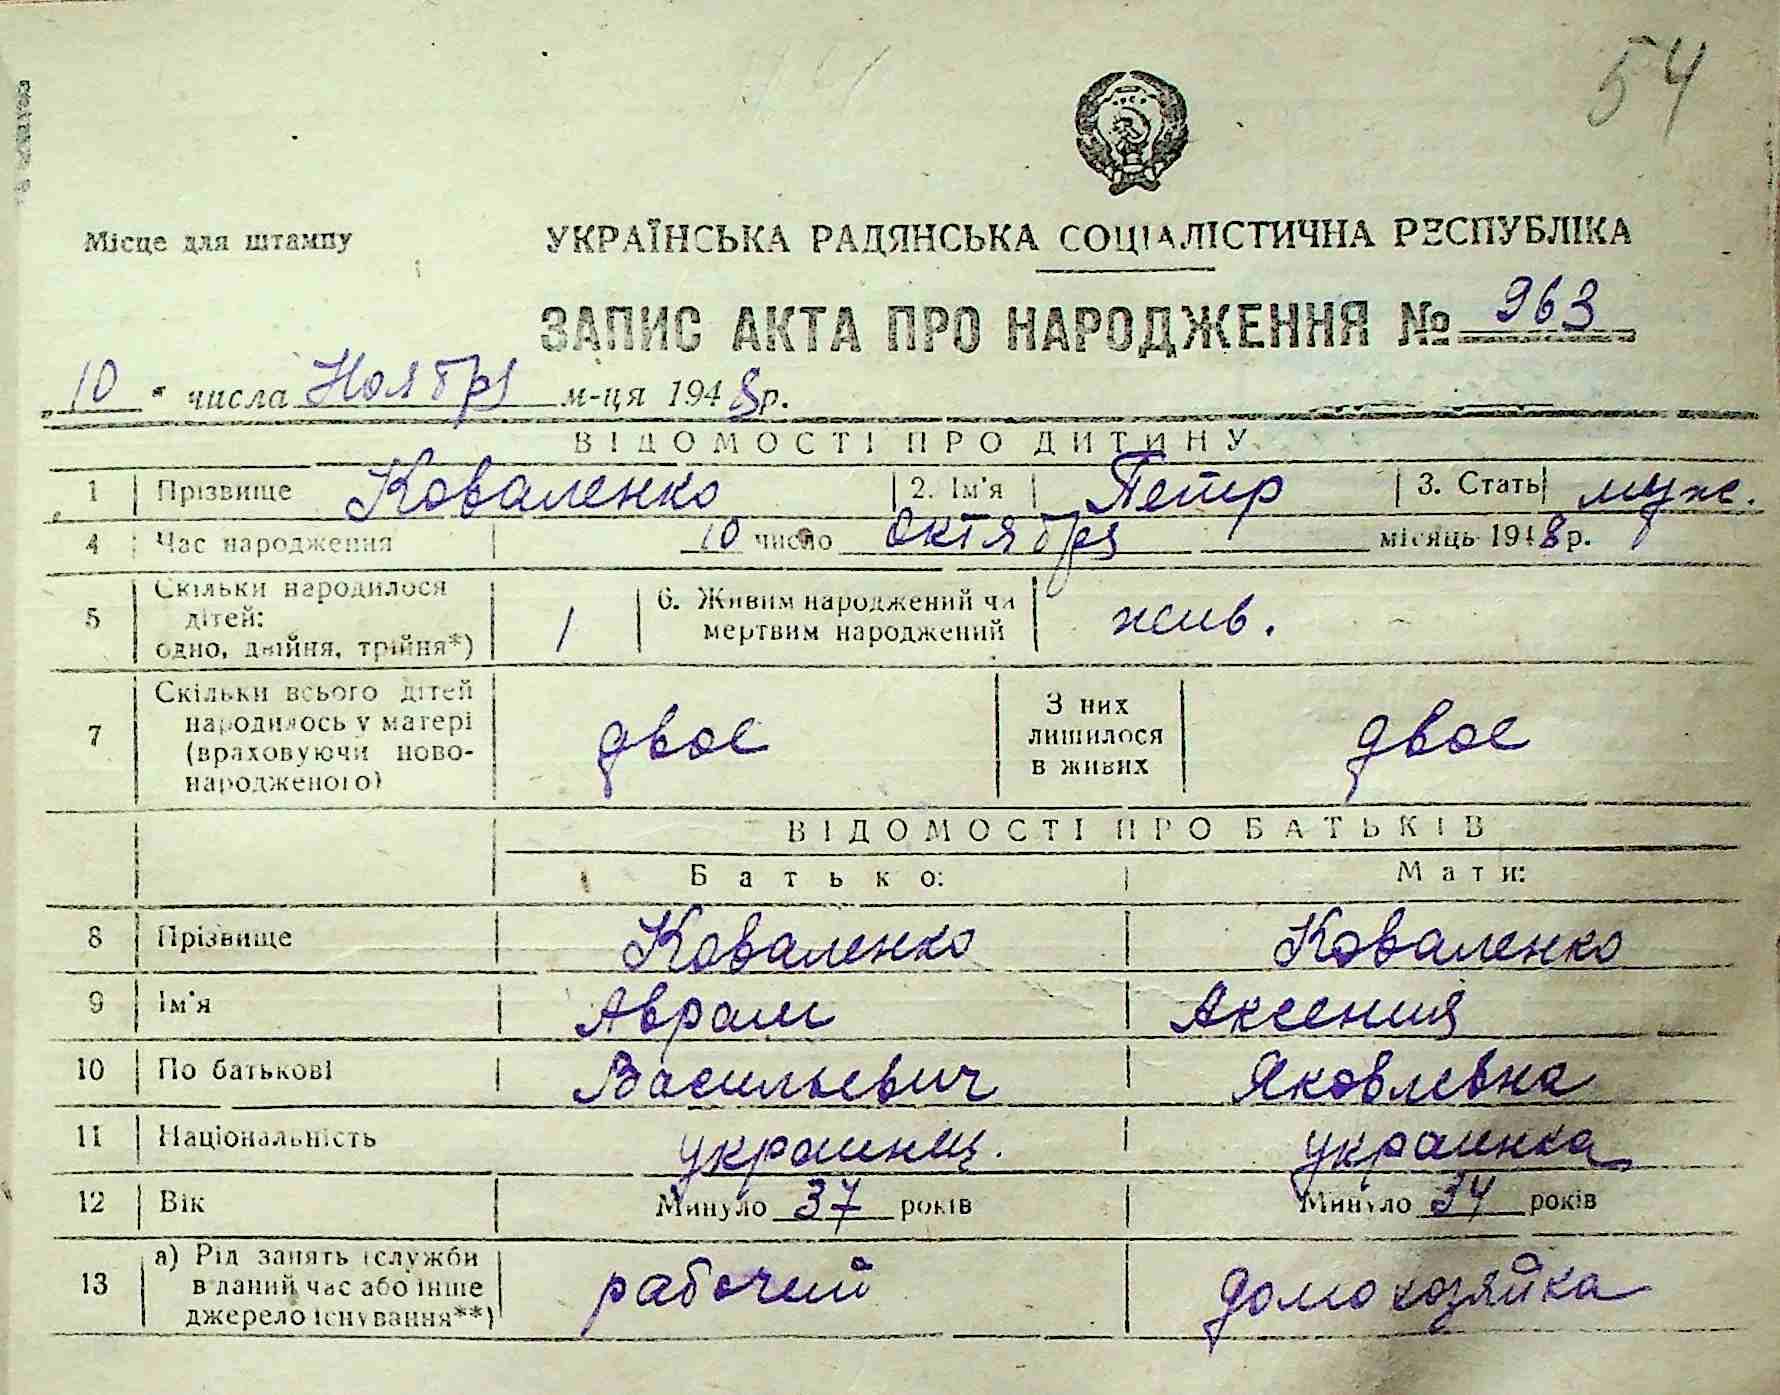 54
Місце для штампу
УКРАЇНСЬКА РАДЯНСЬКА СОЦІАЛІСТИЧНА РЕСПУБЛІКА
ЗАПИС АКТА ПРО НАРОДЖЕННЯ № 963
„10“ числа Ноября м-ця 1948 р.
ВІДОМОСТІ ПРО ДИТИНУ
1 Прізвище Коваленко 2. Ім'я Петр 3. Стать муж.
4 Час народження 10 число октября місяць 1948 р.
5 Скільки народилося дітей: одно, двійня, трійня*) 1 6. Живим народжений чи мертвим народжений жив.
7 Скільки всього дітей народилось у матері (враховуючи ново-народженого) двое З них лишилося в живих двое
ВІДОМОСТІ ПРО БАТЬКІВ
Батько: Мати:
8 Прізвище Коваленко Коваленко
9 Ім'я Аврам Аксения
10 По батькові Васильевич Яковлевна
11 Національність украинец. украинка
12 Вік Минуло 37 років Минуло 34 років
13 а) Рід занять (служби в даний час або інше джерело існування**) рабочий домохозяйка